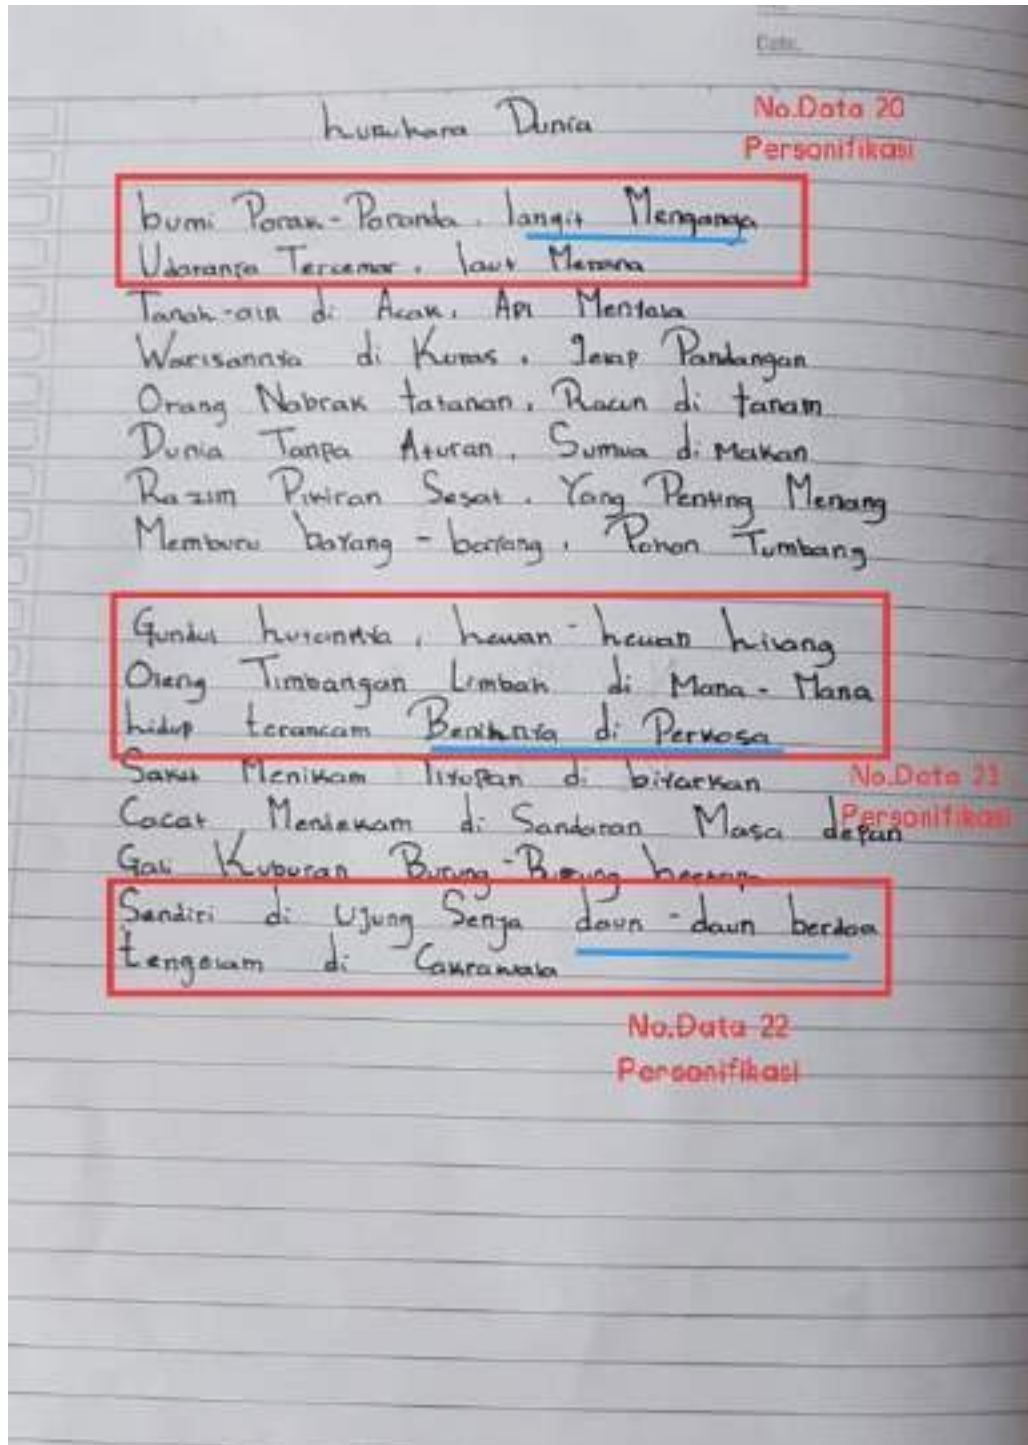 Date.
huruhara Dunia
No.Data 20
Personifikasi
bumi Porak-Poranda. langit Menganga
Udaranya Tercemar, laut Merana
Tanah-air di Acak, Api Menyala
Warisannya di Kuras. Gelap Pandangan
Orang Nabrak tatanan, Racun di tanam
Dunia Tanpa Aturan, Sumua di Makan
Razim Pikiran Sesat. Yang Penting Menang
Memburu bayang-bayang, Pohon Tumbang
Gundul hutannya, hewan-hewan hilang
Oleng Timbangan Limbah di Mana-Mana
hidup terancam Benihnya di Perkosa
Sakit Menikam di biyarkan
No.Data 21
Personifikasi
Cacat Mendekam di Sandaran Masa depan
Gali Kuburan Burung-Burung
Sendiri di Ujung Senja daun-daun berdoa
tengelam di Cakrawala
No.Data 22
Personifikasi